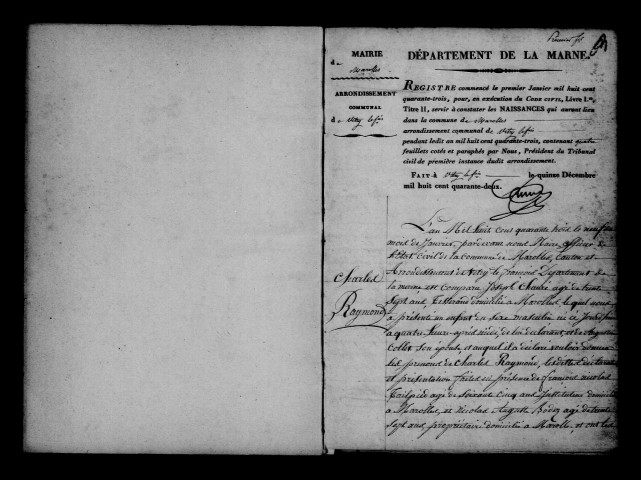 Premier f.
MAIRIE
de
Marolles
ARRONDISSEMENT
COMMUNAL
de Vitry le fs
DÉPARTEMENT DE LA MARNE.
REGISTRE commencé le premier Janvier mil huit cent
quarante-trois, pour, en exécution du CODE CIVIL, Livre I.er,
Titre II, servir à constater les NAISSANCES qui auront lieu
dans la commune de Marolles
arrondissement communal de Vitry le fs
pendant ledit an mil huit cent quarante-trois, contenant quatre
feuillets cotés et paraphés par Nous, Président du Tribunal
civil de première instance dudit arrondissement.
FAIT à Vitry le fs le quinze Décembre
mil huit cent quarante-deux.
Charles
Raymond
L'an Mil huit cent quarante trois le neuf du
mois de Janvier, pardevant nous Maire officier de
l'état Civil de la Commune de Marolles, Canton et
Arrondissement de Vitry le françois Département de
la marne est comparu Joseph Chauré agé de trente
sept ans, Tisserand domicilié à Marolles, lequel nous
a présenté un enfant du sexe masculin né ce jourd'hui
a quatre heure après midi, de lui déclarant, et de
Collet son épouse, et auquel il a déclaré vouloir donner
les prénoms de Charles Raymond, lesdittes déclaration
et présentation faites en présence de françois nicolas
agé de Soixante cinq ans Instituteur domicilié
à Marolles, et Nicolas Auguste agé de trente
sept ans, propriétaire domicilié à Marolles, et ont les